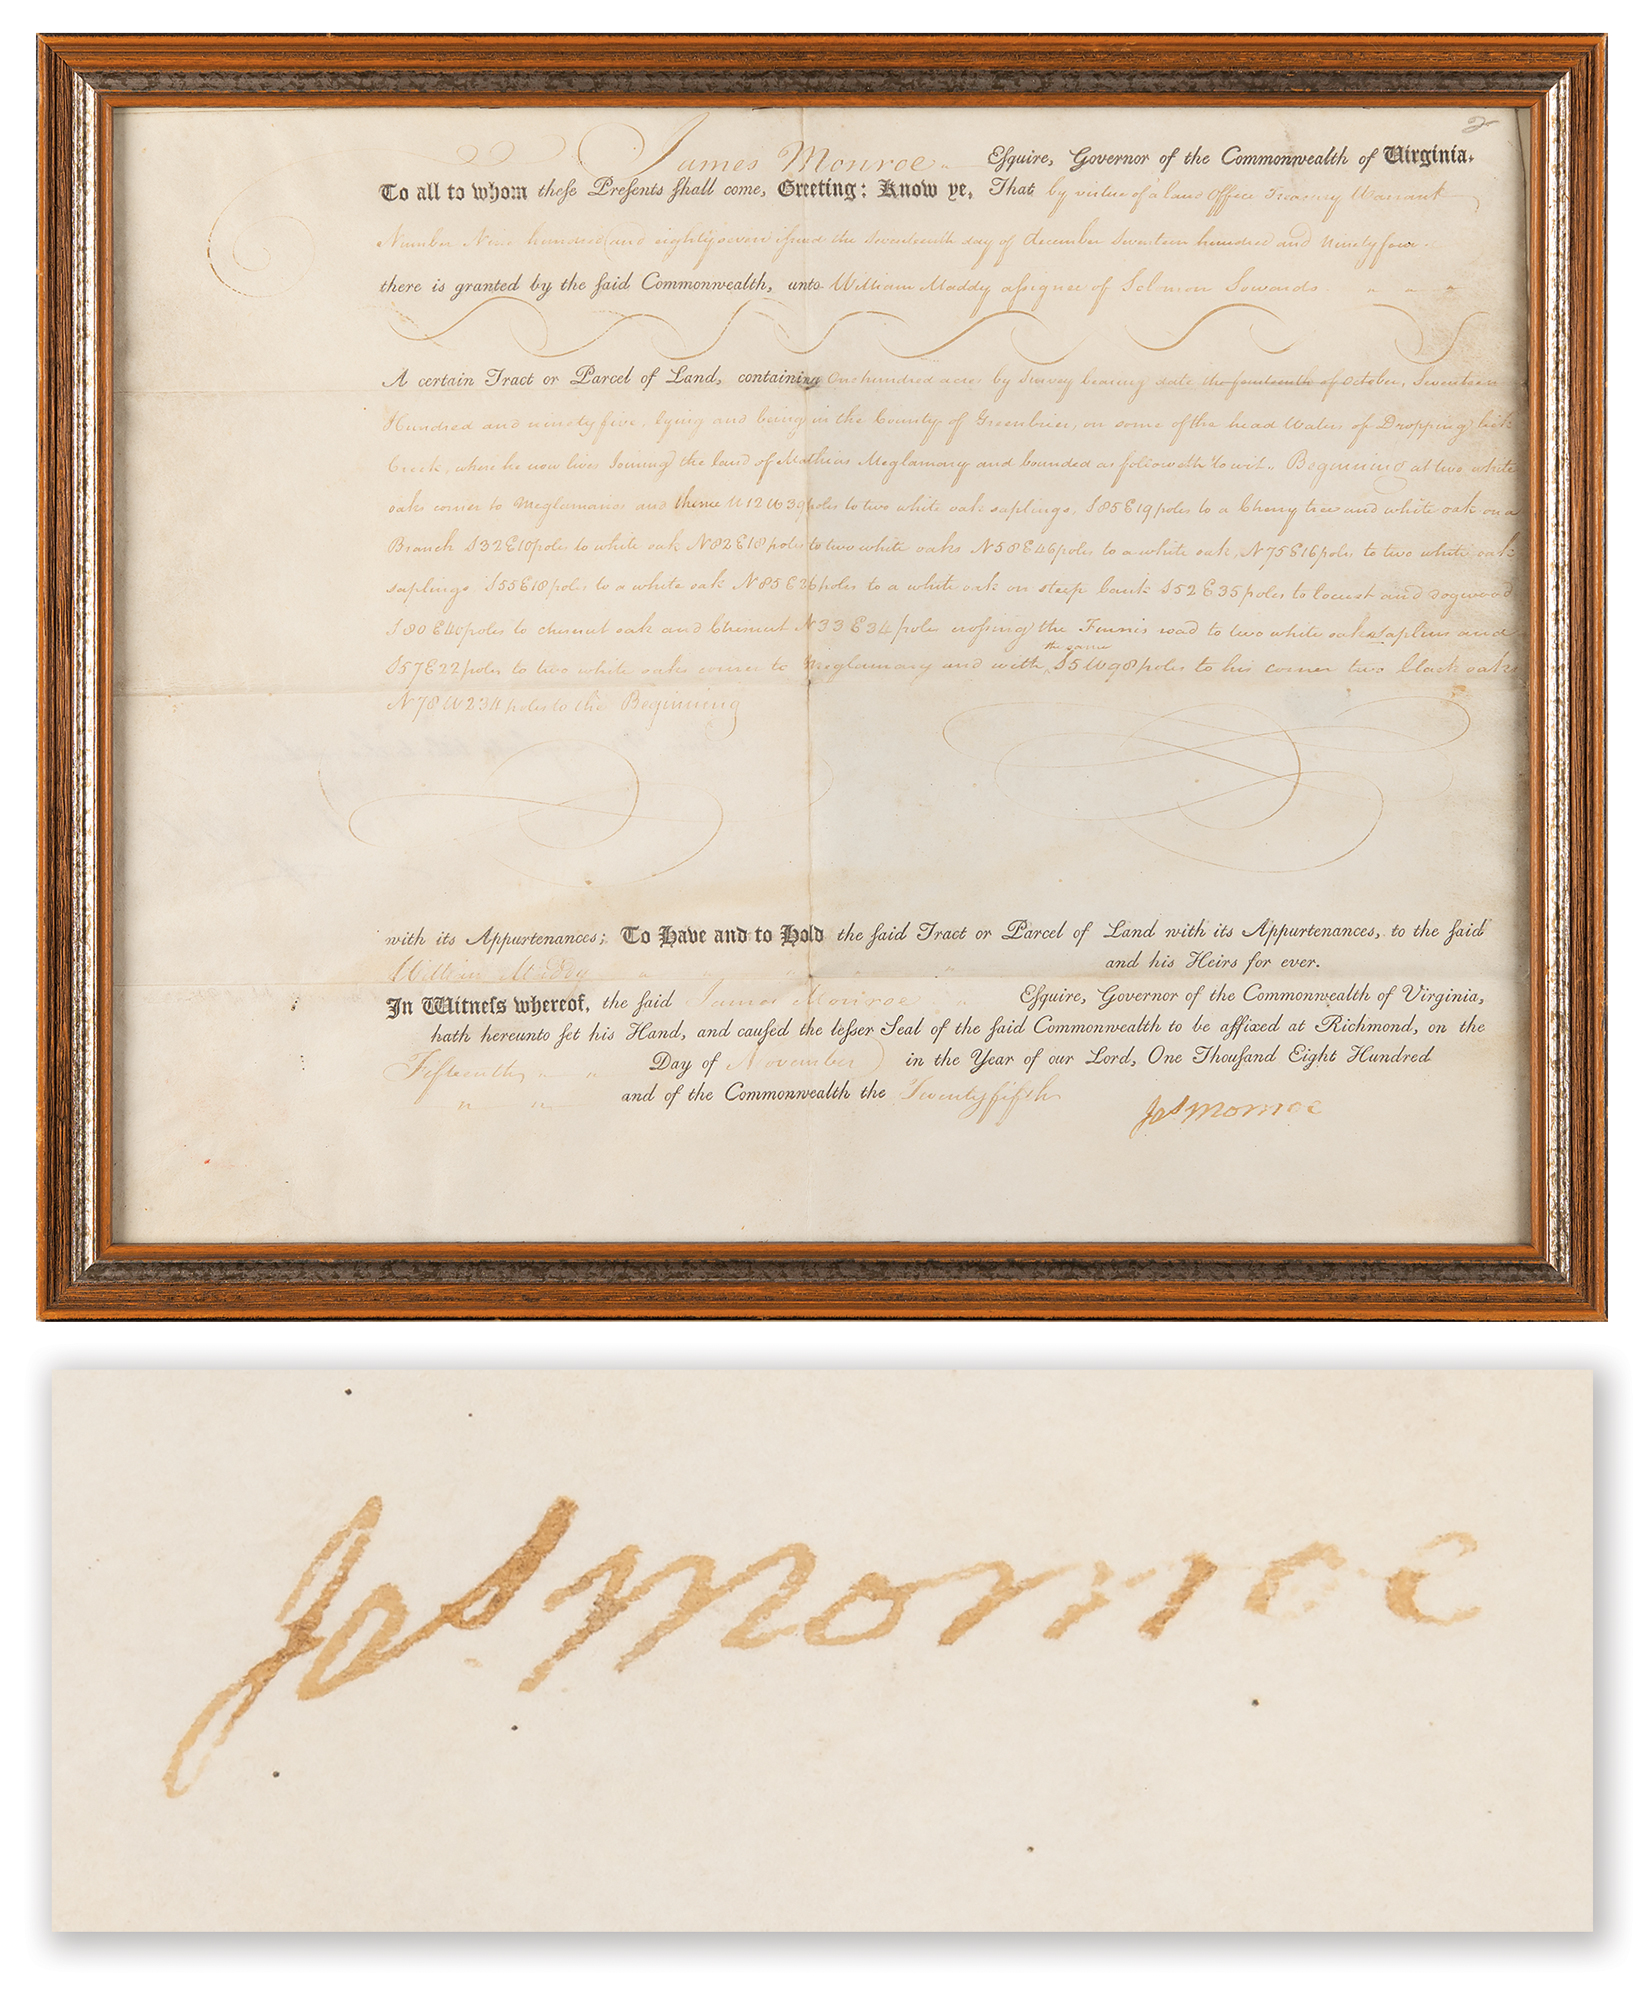 2
James Monroe Esquire, Governor of the Commonwealth of Virginia.
To all to whom theſe Preſents ſhall come, Greeting: Know ye, That by virtue of a land Office Treasury Warrant
Number Nine hundred and eightyseven iſsued the Seventeenth day of december Seventeen hundred and Ninetyfour
there is granted by the ſaid Commonwealth, unto William Maddy aſsignee of Solomon Sowards
A certain Tract or Parcel of Land, containing One hundred acres by Survey bearing date the fourteenth of October, Seventeen
Hundred and ninetyfive, lying and being in the County of Greenbrier, on some of the head Waters of Dropping lick
Creek, where he now lives Joining the land of Mathias Meglamary and bounded as followeth to wit.. Beginning at two white
oaks corner to Meglamaries and thence N12W39poles to two white oak saplings, S85E19poles to a Cherry tree and white oak on a
Branch S32E10poles to white oak N82E18poles to two white oaks N58E46poles to a white oak, N75E16poles to two white oak
saplings S55E18poles to a white oak N85E26poles to a white oak on steep bank S52E35poles to locust and dogwood
S80E40poles to chesnut oak and Chesnut N33E34poles croſsing the Finnis road to two white oak saplins and
S57E22poles to two white oaks corner to Meglamary and with the same S5W98poles to his corner two black oaks
N78W234poles to the Beginning
with its Appurtenances; To Have and to Hold the ſaid Tract or Parcel of Land with its Appurtenances, to the ſaid
William Maddy and his Heirs for ever.
In Witneſs whereof, the ſaid James Monroe Eſquire, Governor of the Commonwealth of Virginia,
hath hereunto ſet his Hand, and cauſed the leſser Seal of the ſaid Commonwealth to be affixed at Richmond, on the
Fifteenth Day of November in the Year of our Lord, One Thouſand Eight Hundred
and of the Commonwealth the Twentyfifth
Jas Monroe
Jas Monroe